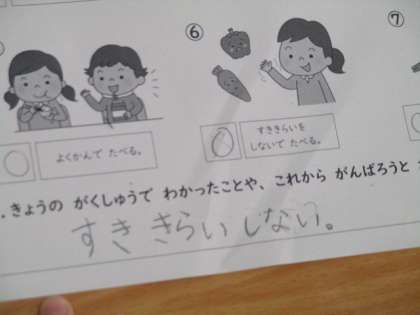 ⑥
⑦
よくかんで たべる。
すききらいを
しないで たべる。
.きょうの がくしゅうで わかったことや、これから がんばろうと
すききらいしない。